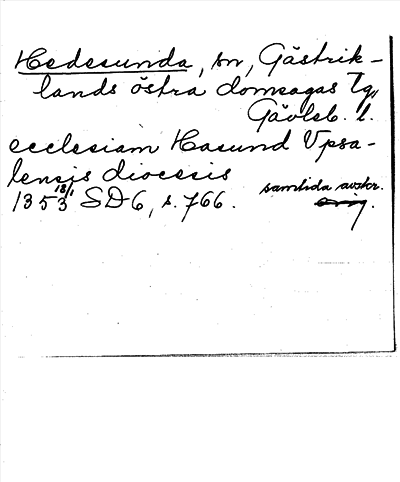 Hedesunda, sn, Gästrik-
lands östra domsagas tg,
Gävleb. l.
ecclesiam Hasund Vpsa-
lensis diocesis
1353 18/1 SD6, s. 766. samtida avskr.
orig.